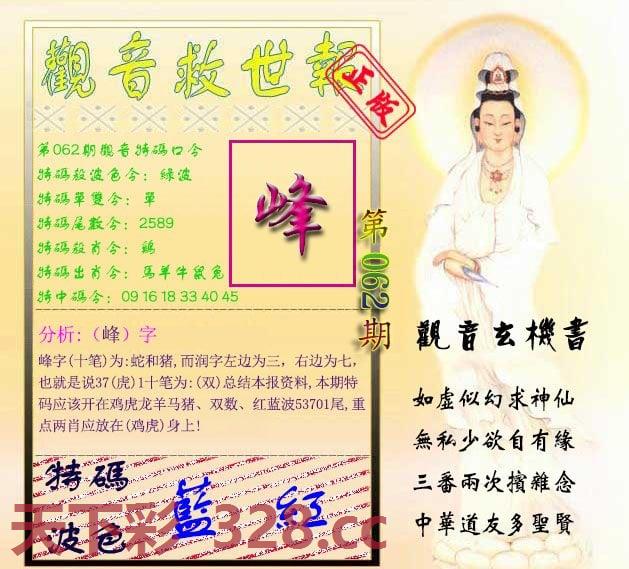 觀音救世報
正版
第062期觀音特碼口令
特碼殺波色令：綠波
特碼單雙令：單
特碼尾數令：2589
特碼殺肖令：鷄
特碼出肖令：馬羊牛鼠兔
特中碼令：09 16 18 33 40 45
峰
第062期
分析:（峰）字
峰字(十笔)为:蛇和猪,而润字左边为三，右边为七，
也就是说37(虎)1十笔为:(双)总结本报资料,本期特
码应该开在鸡虎龙羊马猪、双数、红蓝波53701尾,重
点两肖应放在(鸡虎)身上!
特碼
波色
藍 紅
天下彩 328.cc
觀音玄機書
如虛似幻求神仙
無私少欲自有緣
三番兩次擯雜念
中華道友多聖賢